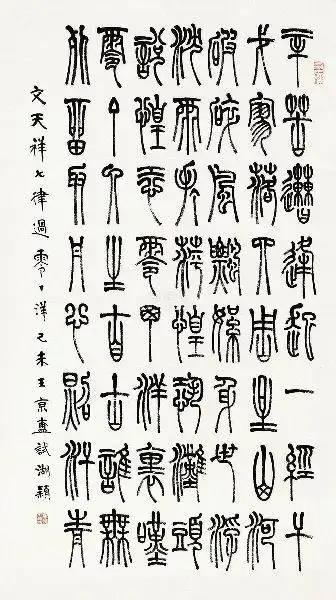 辛苦遭逢起一經干
戈寥落四周星山河
破碎風飄絮身世浮
沈雨打萍惶恐灘頭
說惶恐零丁洋裏嘆
零丁人生自古誰無
死留取丹心照汗青
文天祥七律過零丁洋己未王京盙試湖穎